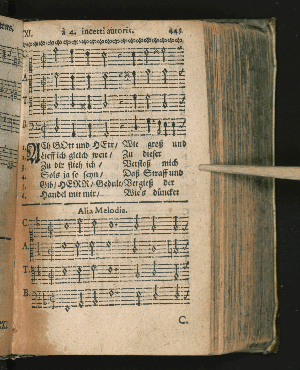 XI. à 4. incerti autoris. 445
1. ACh GOtt und HErr/ Wie groß und
2. Lieff ich gleich weit/ Zu dieser
3. Zu dir flieh ich/ Verstoß mich
4. Sols ja so seyn/ Daß Straff und
5. Gib/HERR/Gedult/ Vergieß der
6. Handel mit mir/ Wie's düncket
Alia Melodia.
C.
A.
T.
B.
C.